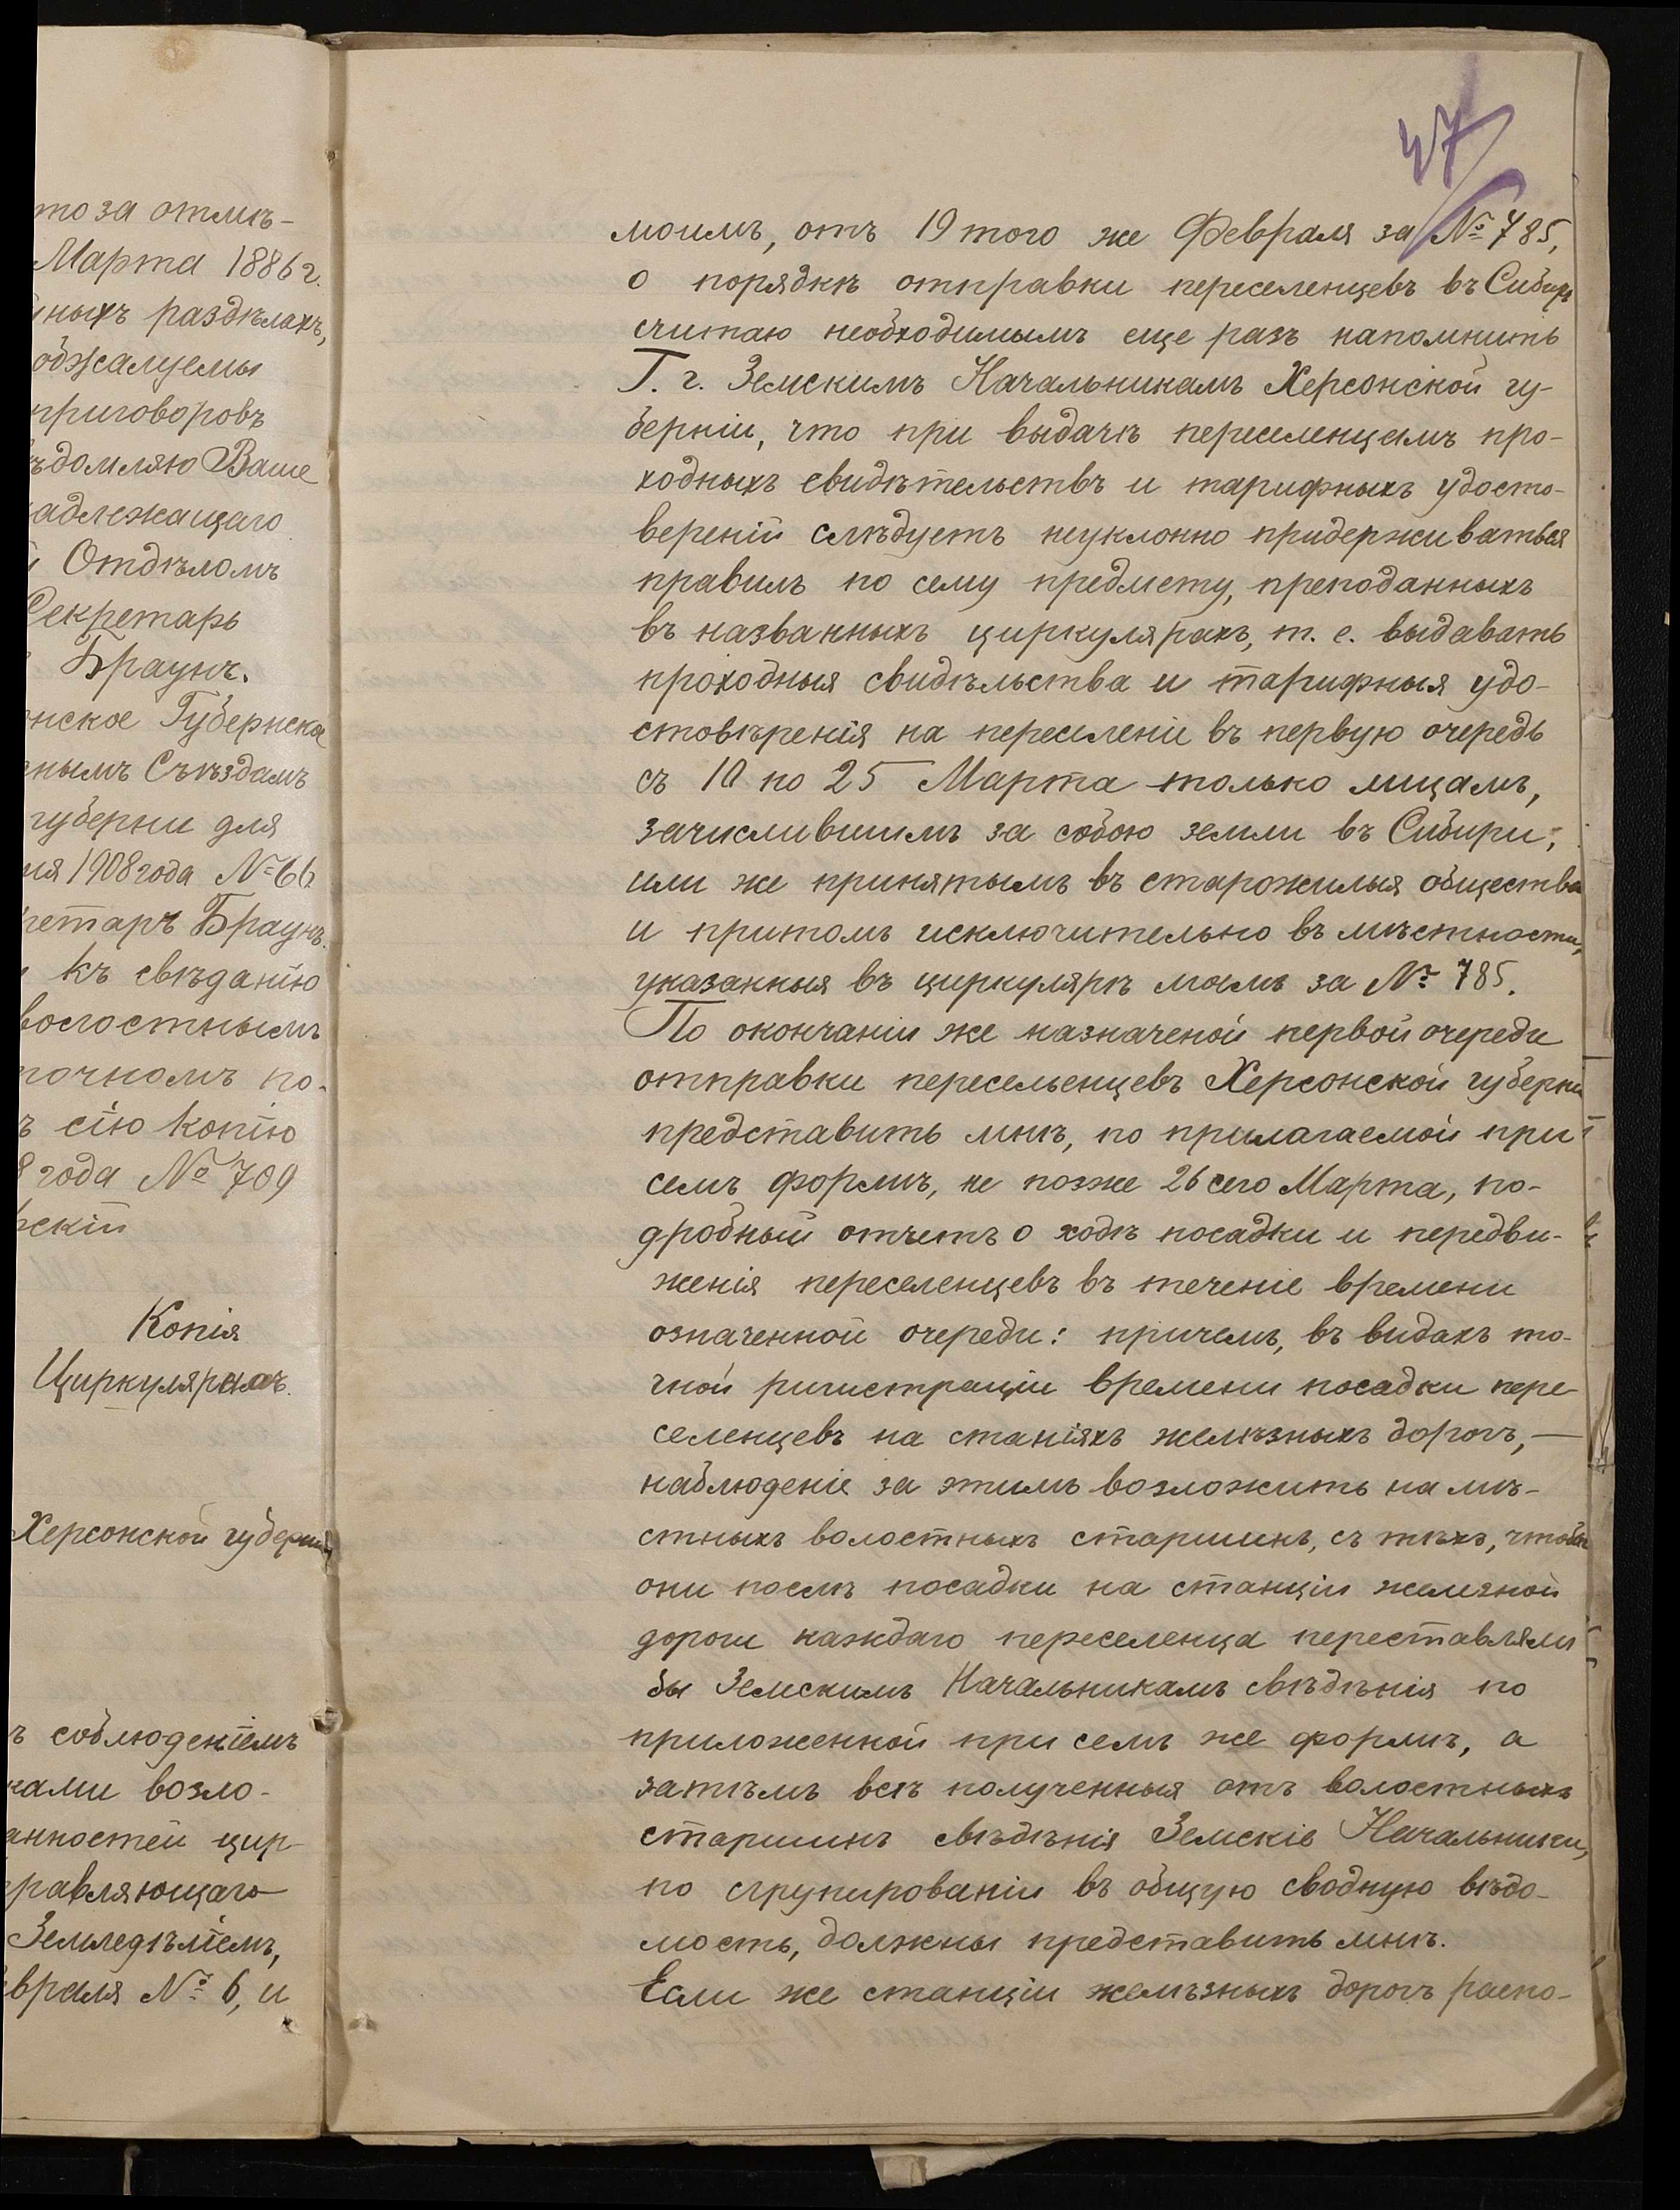 то за отмѣ-
Марта 1886 г.
ныхъ раздѣлахъ,
обжалуемы
приговоровъ
ѣдомляю Ваше
адлежащаго
Отдѣломъ
Секретарь
Браунъ.
нское Губернское
нымъ Съѣздамъ
губерніи для
ля 1908 года № 66
ретарь Браунъ.
къ свѣданію
волостнымъ
точномъ по-
ъ сію копію
8 года № 709
рскій
Копія
Циркулярно.
Херсонской губерніи
ъ соблюденіемъ
ками возло-
анностей цир-
равляющаго
Земледѣліемъ,
враля № 6, и
47
моимъ, отъ 19 того же Февраля за № 785,
о порядкѣ отправки переселенцевъ въ Сибирь
считаю необходимымъ еще разъ напомнить
Г. г. Земскимъ Начальникамъ Херсонской гу-
берніи, что при выдачѣ переселенцамъ про-
ходныхъ свидѣтельствъ и тарифныхъ удосто-
вереній слѣдуетъ неуклонно придерживаться
правилъ по сему предмету, преподанныхъ
въ названныхъ циркулярахъ, т. е. выдавать
проходныя свидѣльства и тарифныя удо-
стовѣренія на переселеніе въ первую очередь
съ 10 по 25 Марта только лицамъ,
зачислившимъ за собою земли въ Сибири;
или же принятымъ въ старожилыя общества
и притомъ исключительно въ мѣстности,
указанныя въ циркулярѣ моемъ за № 785.
По окончаніи же назначеной первой очереди
отправки пересельенцевъ Херсонской губерніи
представить мнѣ, по прилагаемой при
семъ формѣ, не позже 26 сего Марта, по-
дробный отчетъ о ходѣ посадки и передви-
женія переселенцевъ въ теченіе времени
означенной очереди: причемъ, въ видахъ то-
чной ригистраціи времени посадки пере-
селенцевъ на станіяхъ желѣзныхъ дорогъ,—
наблюденіе за этимъ возложить на мѣ-
стныхъ волостныхъ старшинъ, съ тѣхъ, чтобы
они послѣ посадки на станціи желѣзной
дороги каждаго переселенца переставляли
бы Земскимъ Начальникамъ свѣдѣнія по
приложенной при семъ же формѣ, а
затѣмъ всѣ полученныя отъ волостныхъ
старшинъ свѣдѣнія Земскіе Начальники,
по сгрупированіи въ общую сводную вѣдо-
мость, должны представить мнѣ.
Если же станціи желѣзныхъ дорогъ распо-